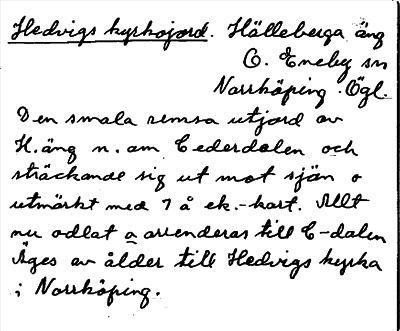 Hedvigs kyrkojord. Hälleberga äng
Ö. Eneby sn
Norrköping. Ögl.
Den smala remsa utjord av
H.äng n. om Cederdalen och
sträckande sig ut mot sjön o
utmärkt med 7 å ek.-kart. Allt
nu odlat o arrenderas till C-dalen
Äges av ålder till Hedvigs kyrka
i Norrköping.